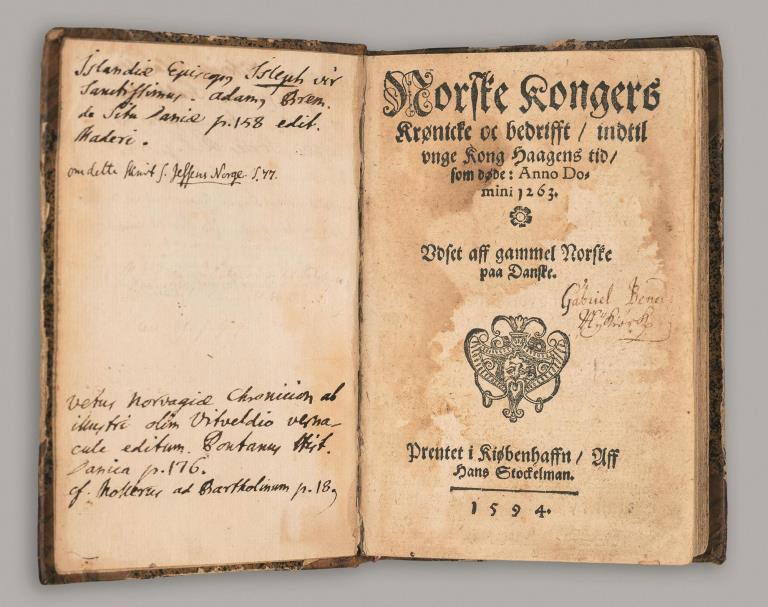 Islandiæ Episcopus Isleph vir
Sanctissimus. adamus Brem.
de Situ Daniæ p. 158 edit.
Maderi.
om dette skrift s. Jessens Norge S. 77.
vetus Norvagiæ Chronicon ab
illustri olim Vitveldio verna-
cule editum. Pontanus Hist.
Danica p. 176.
cf. Mollerus ad Bartholinum p. 18
Norske Kongers
Krønicke oc bedrifft / indtil
vnge Kong Haagens tid /
som døde: Anno Do-
mini 1263.
Vdset aff gammel Norske
paa Danske.
Gabriel
Prentet i Kiøbenhaffn / Aff
Hans Stockelman.
1594.